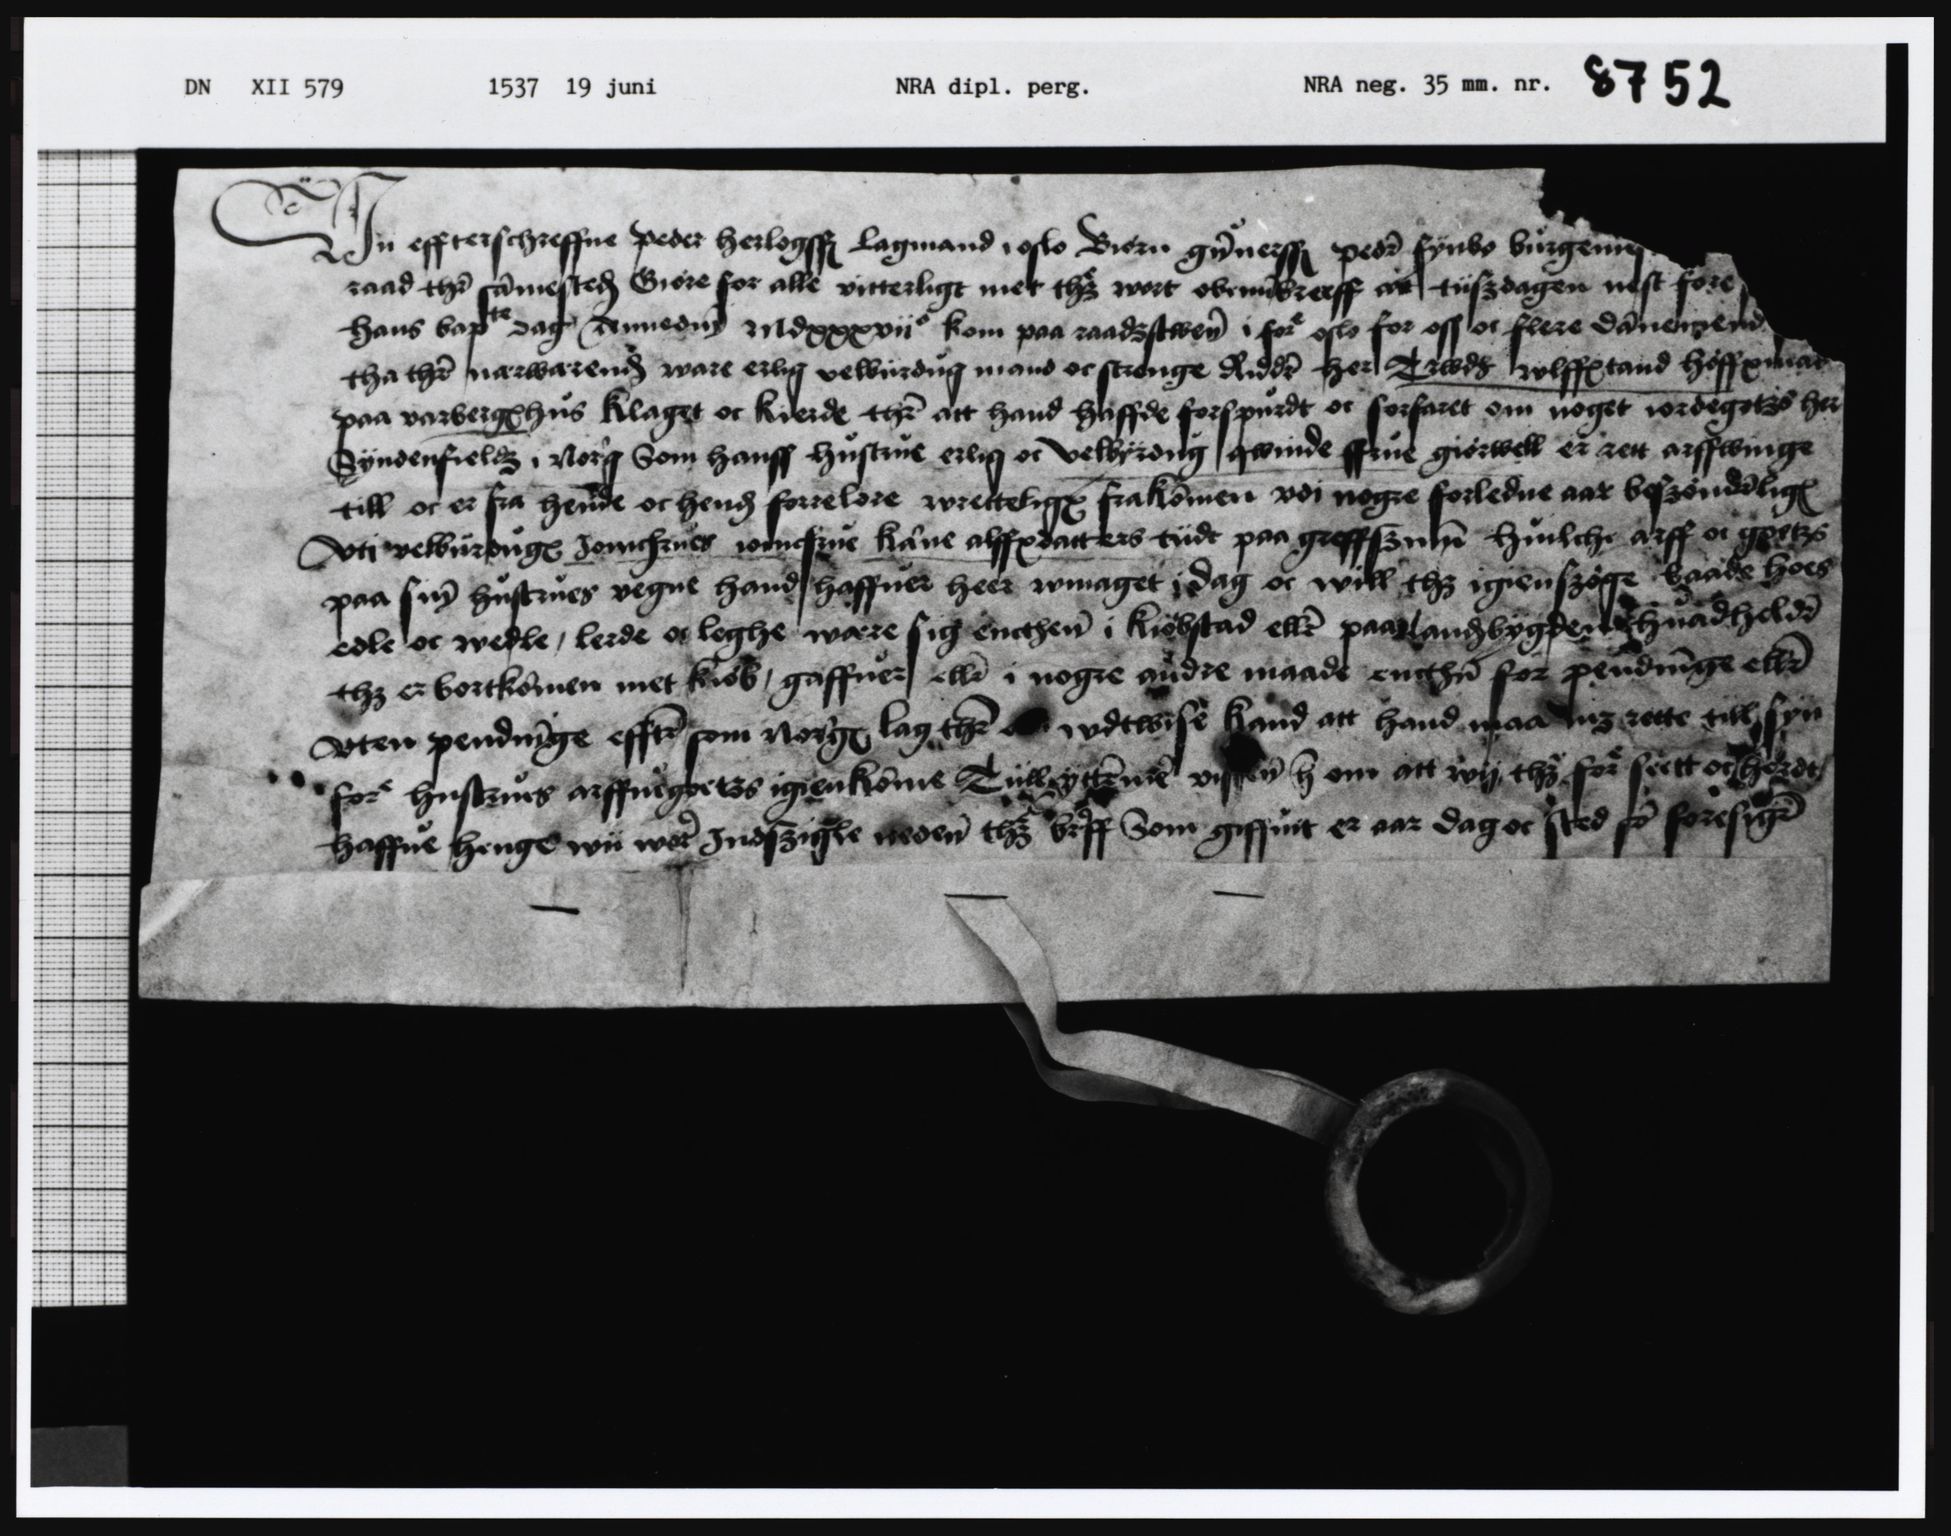 DN XII 579 1537 19 juni NRA dipl. perg. NRA neg. 35 mm. nr. 8752
effterschreffne peder herlogss lagmand i oslo Biørn gu̅nerss peder synbo burgemes
raad ther sa̅mested Giøre for alle vitterligt met thz wort obne breff att tiiszdagen nest fore
hans bapte dag Anno dni Mdxxxvii kom paa raadzstwen i for oslo for oss oc flere da̅nemend
tha ther nærwærend ware erlig velburdug mand oc strenge Ridder her Trwdz wlffstand høffwitzmand
paa varbergxhus klaget oc kierde ther att hand haffde forspurdt oc forfaret om noget iordegotzs her
Syndenfieldz i Norg Som hanss hustrue erlig oc velbyrdug qwinde ffrue giørwell er rett arffwinge
till oc er fra hende oc hend forrelore wretteligx frako̅men vdi nogre forledne aar beszønderligx
Vti velburdugx Jomfrues iomfrue ka̅ne alffxdatters tiidt paa greffsznm̅ huilche arff oc gotzs
paa sin hustrues vegne hand haffuer heer wmaget i dag oc will thz igienszøge baade hoes
edle oc wedle, lerde oc leghe wære sig encthen i kiøbstad eller paa landzbygden huad helder
thz er bortko̅men met kiøb, gaffuer eller i nogre andre maade encthen for pendinge eller
vten pendinge effter som Norgx lag ther wdtwise kand att hand maa mz rette till syn
for hustrues arffuegoetzs igienko̅me Tiill ytterme vissen her om att wij thz for seett oc hørdt
haffue henge wii wor Indszigle neden thz breff Som giffuit er aar dag oc sted som foresiger